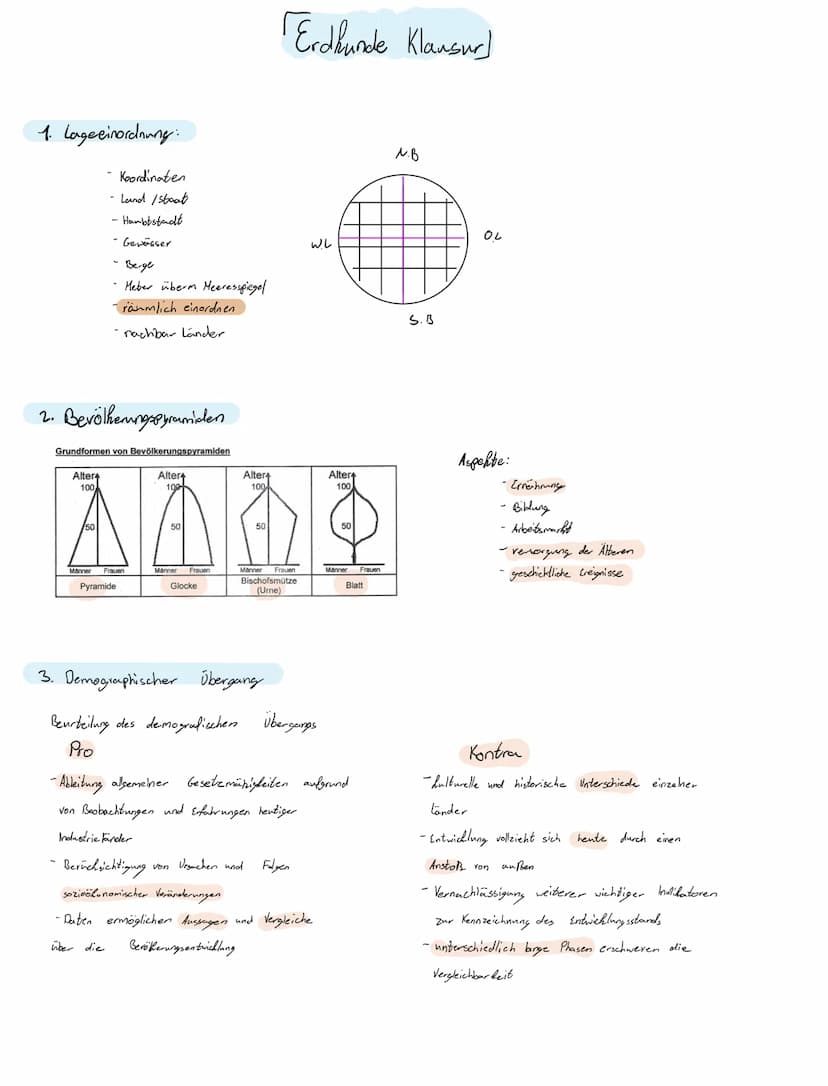 [Erdkunde Klausur]
1. Lageeinordnung:
- Koordinaten
- Land / Staat
- Hauptstadt
- Gewässer
- Berge
- Meter überm Meeresspiegel
- räumlich einordnen
- nachbar Länder
N.B
W.L
O.L
S.B
2. Bevölkerungspyramiden
Grundformen von Bevölkerungspyramiden
Alter Alter Alter Alter
100 100 100 100
50 50 50 50
Männer Frauen Männer Frauen Männer Frauen Männer Frauen
Pyramide Glocke Bischofsmütze Blatt
(Urne)
Aspekte:
- Ernährung
- Bildung
- Arbeitsmarkt
- versorgung der Älteren
- geschichtliche Ereignisse
3. Demographischer Übergang
Beurteilung des demografischen Übergangs
Pro
- Ableitung allgemeiner Gesetzmäßigkeiten aufgrund
von Beobachtungen und Erfahrungen heutiger
Industrieländer
- Berücksichtigung von Ursachen und Folgen
sozioökonomischer Veränderungen
- Daten ermöglichen Aussagen und Vergleiche
über die Bevölkerungsentwicklung
Kontra
- kulturelle und historische Unterschiede einzelner
Länder
- Entwicklung vollzieht sich heute durch einen
Anstoß von außen
- Vernachlässigung weiterer wichtiger Indikatoren
zur Kennzeichnung des Entwicklungsstands
- unterschiedlich lange Phasen erschweren die
Vergleichbarkeit